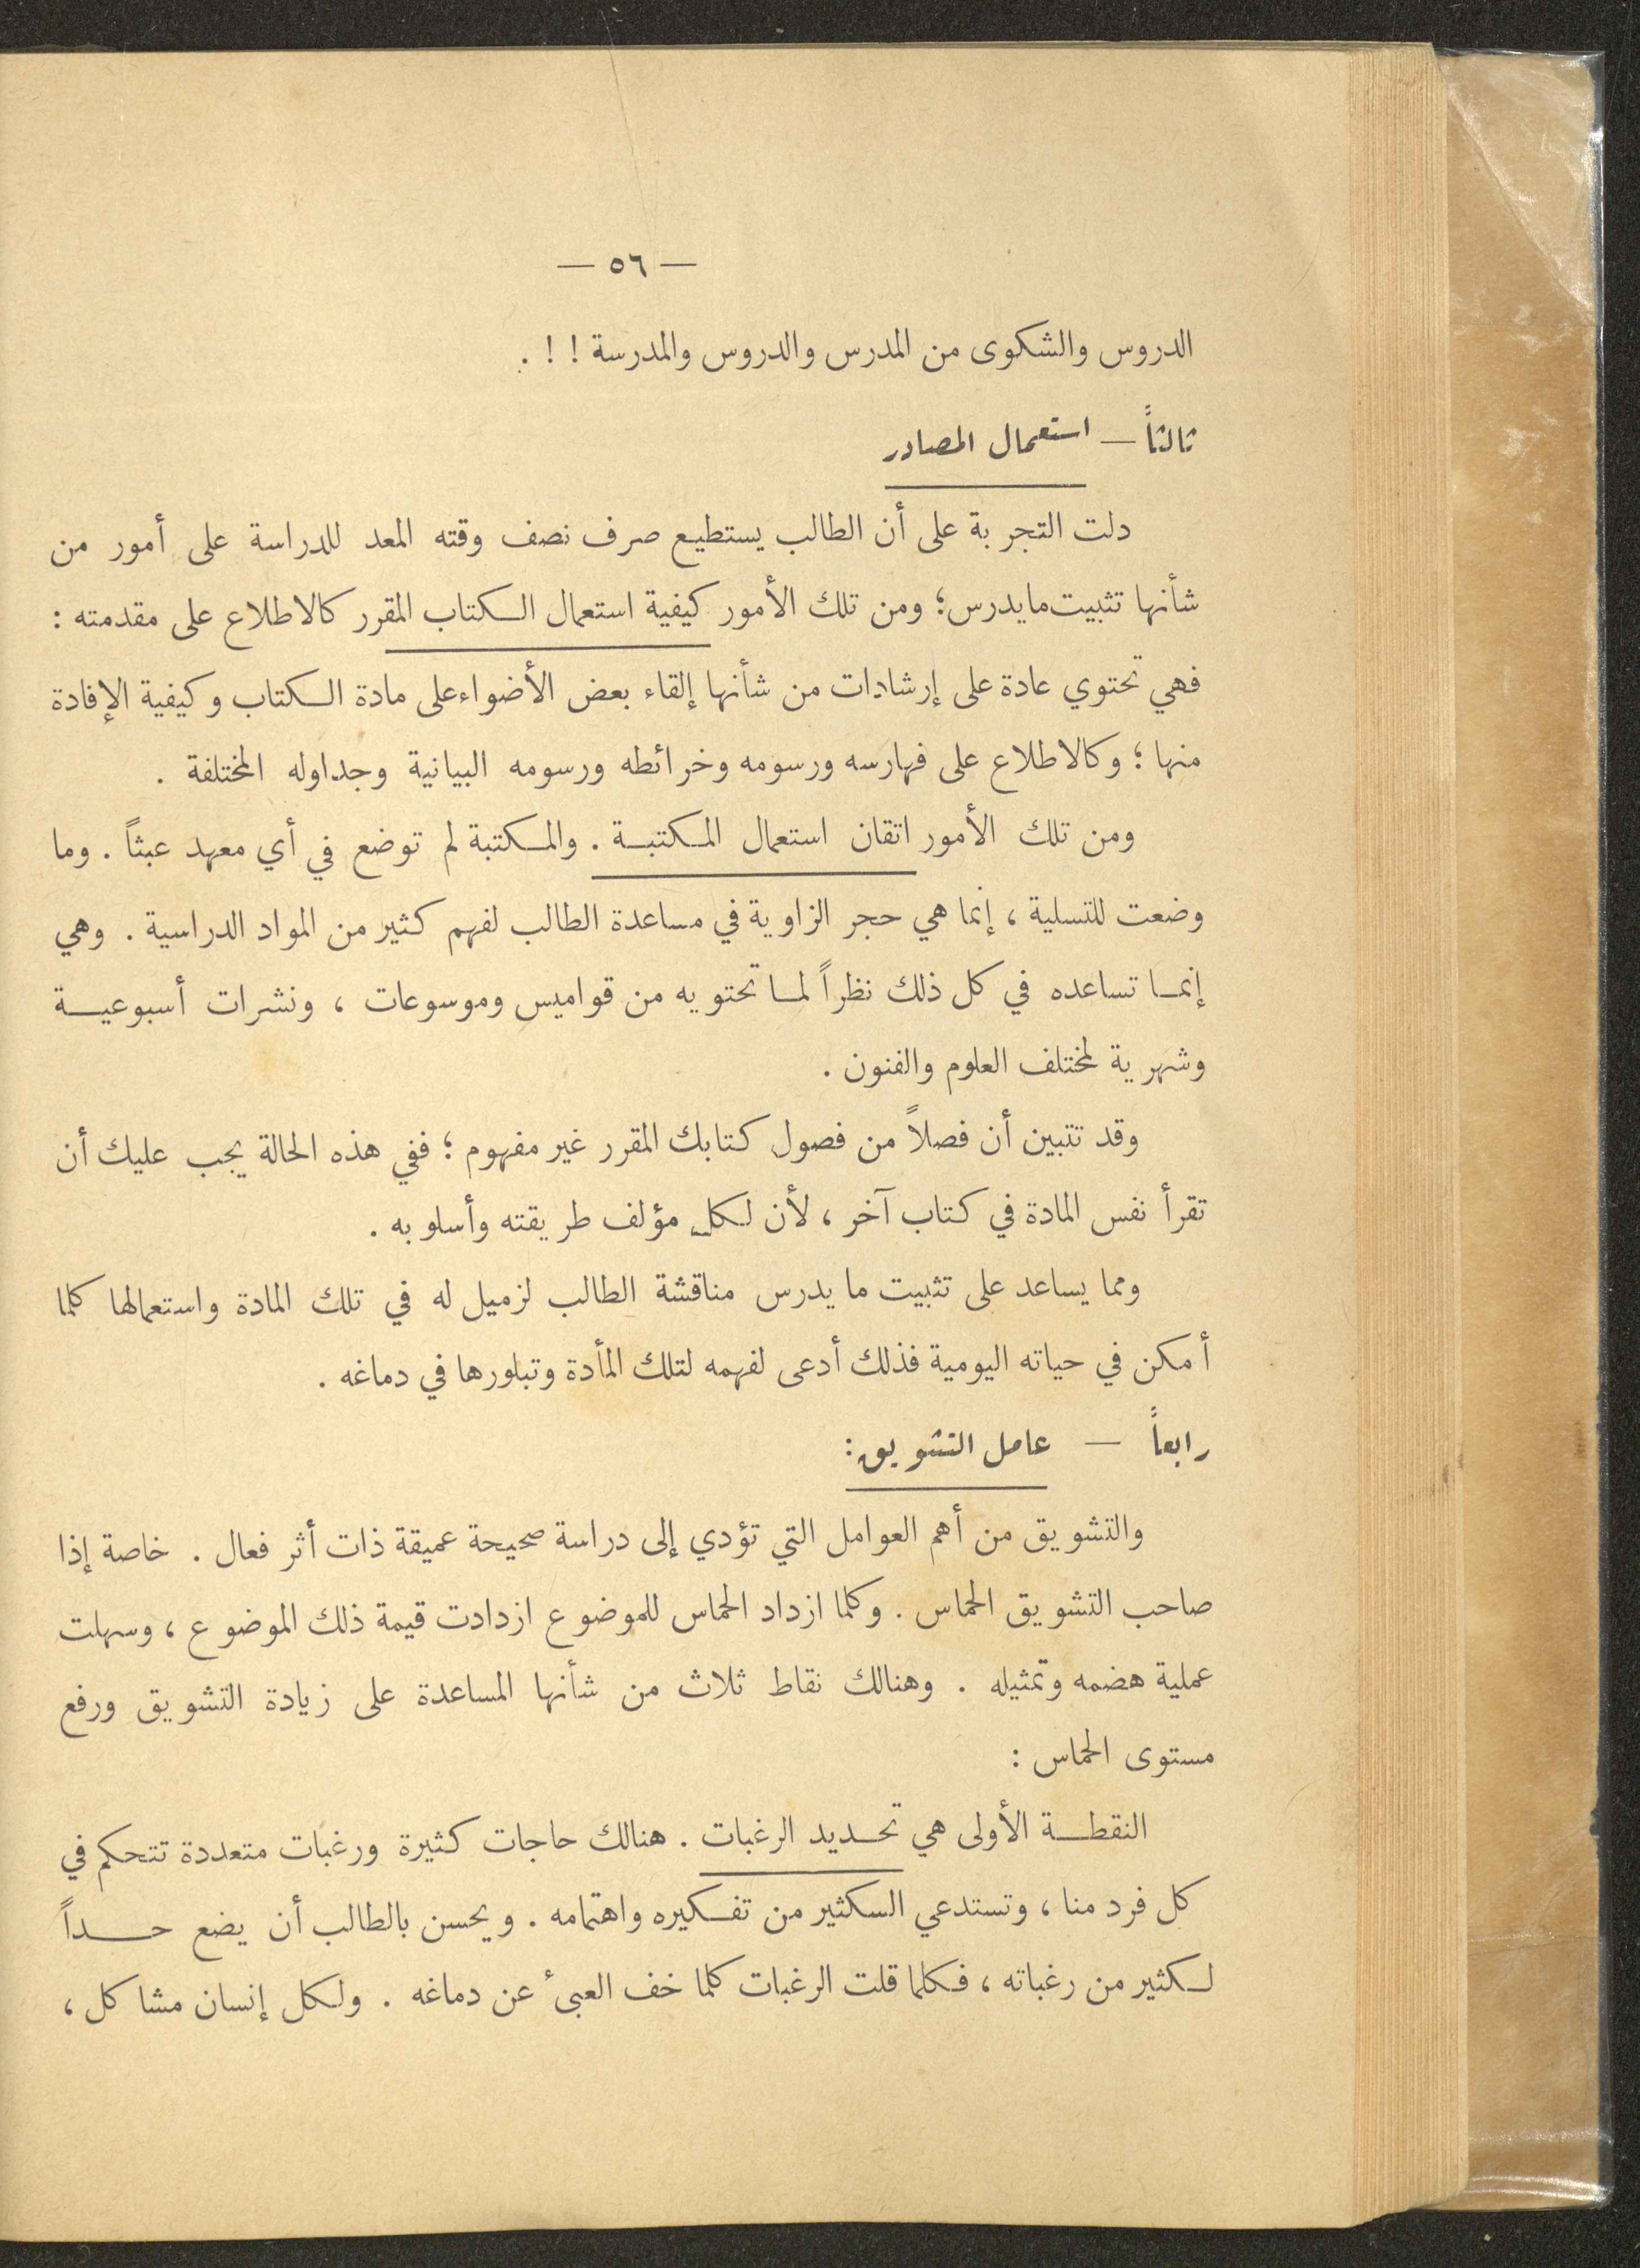 — ٥٦ —
الدروس والشكوى من المدرس والدروس والمدرسة ! ! .
ثالثاً — استعمال المصادر
دلت التجربة على أن الطالب يستطيع صرف نصف وقته المعد للدراسة على أمور من
شأنها تثبيت مايدرس؛ ومن تلك الأمور كيفية استعمال الكتاب المقرر كالاطلاع على مقدمته :
فهي تحتوي عادة على إرشادات من شأنها إلقاء بعض الأضواء على مادة الكتاب وكيفية الإفادة
منها ؛ وكالاطلاع على فهارسه ورسومه وخرائطه ورسومه البيانية وجداوله المختلفة .
ومن تلك الأمور اتقان استعمال المكتبة . والمكتبة لم توضع في أي معهد عبثاً . وما
وضعت للتسلية ، إنما هي حجر الزاوية في مساعدة الطالب لفهم كثير من المواد الدراسية . وهي
إنما تساعده في كل ذلك نظراً لما تحتويه من قواميس وموسوعات ، ونشرات أسبوعية
وشهرية لمختلف العلوم والفنون .
وقد تتبين أن فصلاً من فصول كتابك المقرر غير مفهوم ؛ ففي هذه الحالة يجب عليك أن
تقرأ نفس المادة في كتاب آخر ، لأن لكل مؤلف طريقته وأسلوبه .
ومما يساعد على تثبيت ما يدرس مناقشة الطالب لزميل له في تلك المادة واستعمالها كلما
أمكن في حياته اليومية فذلك أدعى لفهمه لتلك المأدة وتبلورها في دماغه .
رابعاً — عامل التشويق :
والتشويق من أهم العوامل التي تؤدي إلى دراسة صحيحة عميقة ذات أثر فعال . خاصة إذا
صاحب التشويق الحماس . وكلما ازداد الحماس للموضوع ازدادت قيمة ذلك الموضوع ، وسهلت
عملية هضمه وتمثيله . وهنالك نقاط ثلاث من شأنها المساعدة على زيادة التشويق ورفع
مستوى الحماس :
النقطة الأولى هي تحديد الرغبات . هنالك حاجات كثيرة ورغبات متعددة تتحكم في
كل فرد منا ، وتستدعي الكثير من تفكيره واهتمامه . ويحسن بالطالب أن يضع حداً
لكثير من رغباته ، فكلما قلت الرغبات كلما خف العبئ عن دماغه . ولكل إنسان مشاكل ،